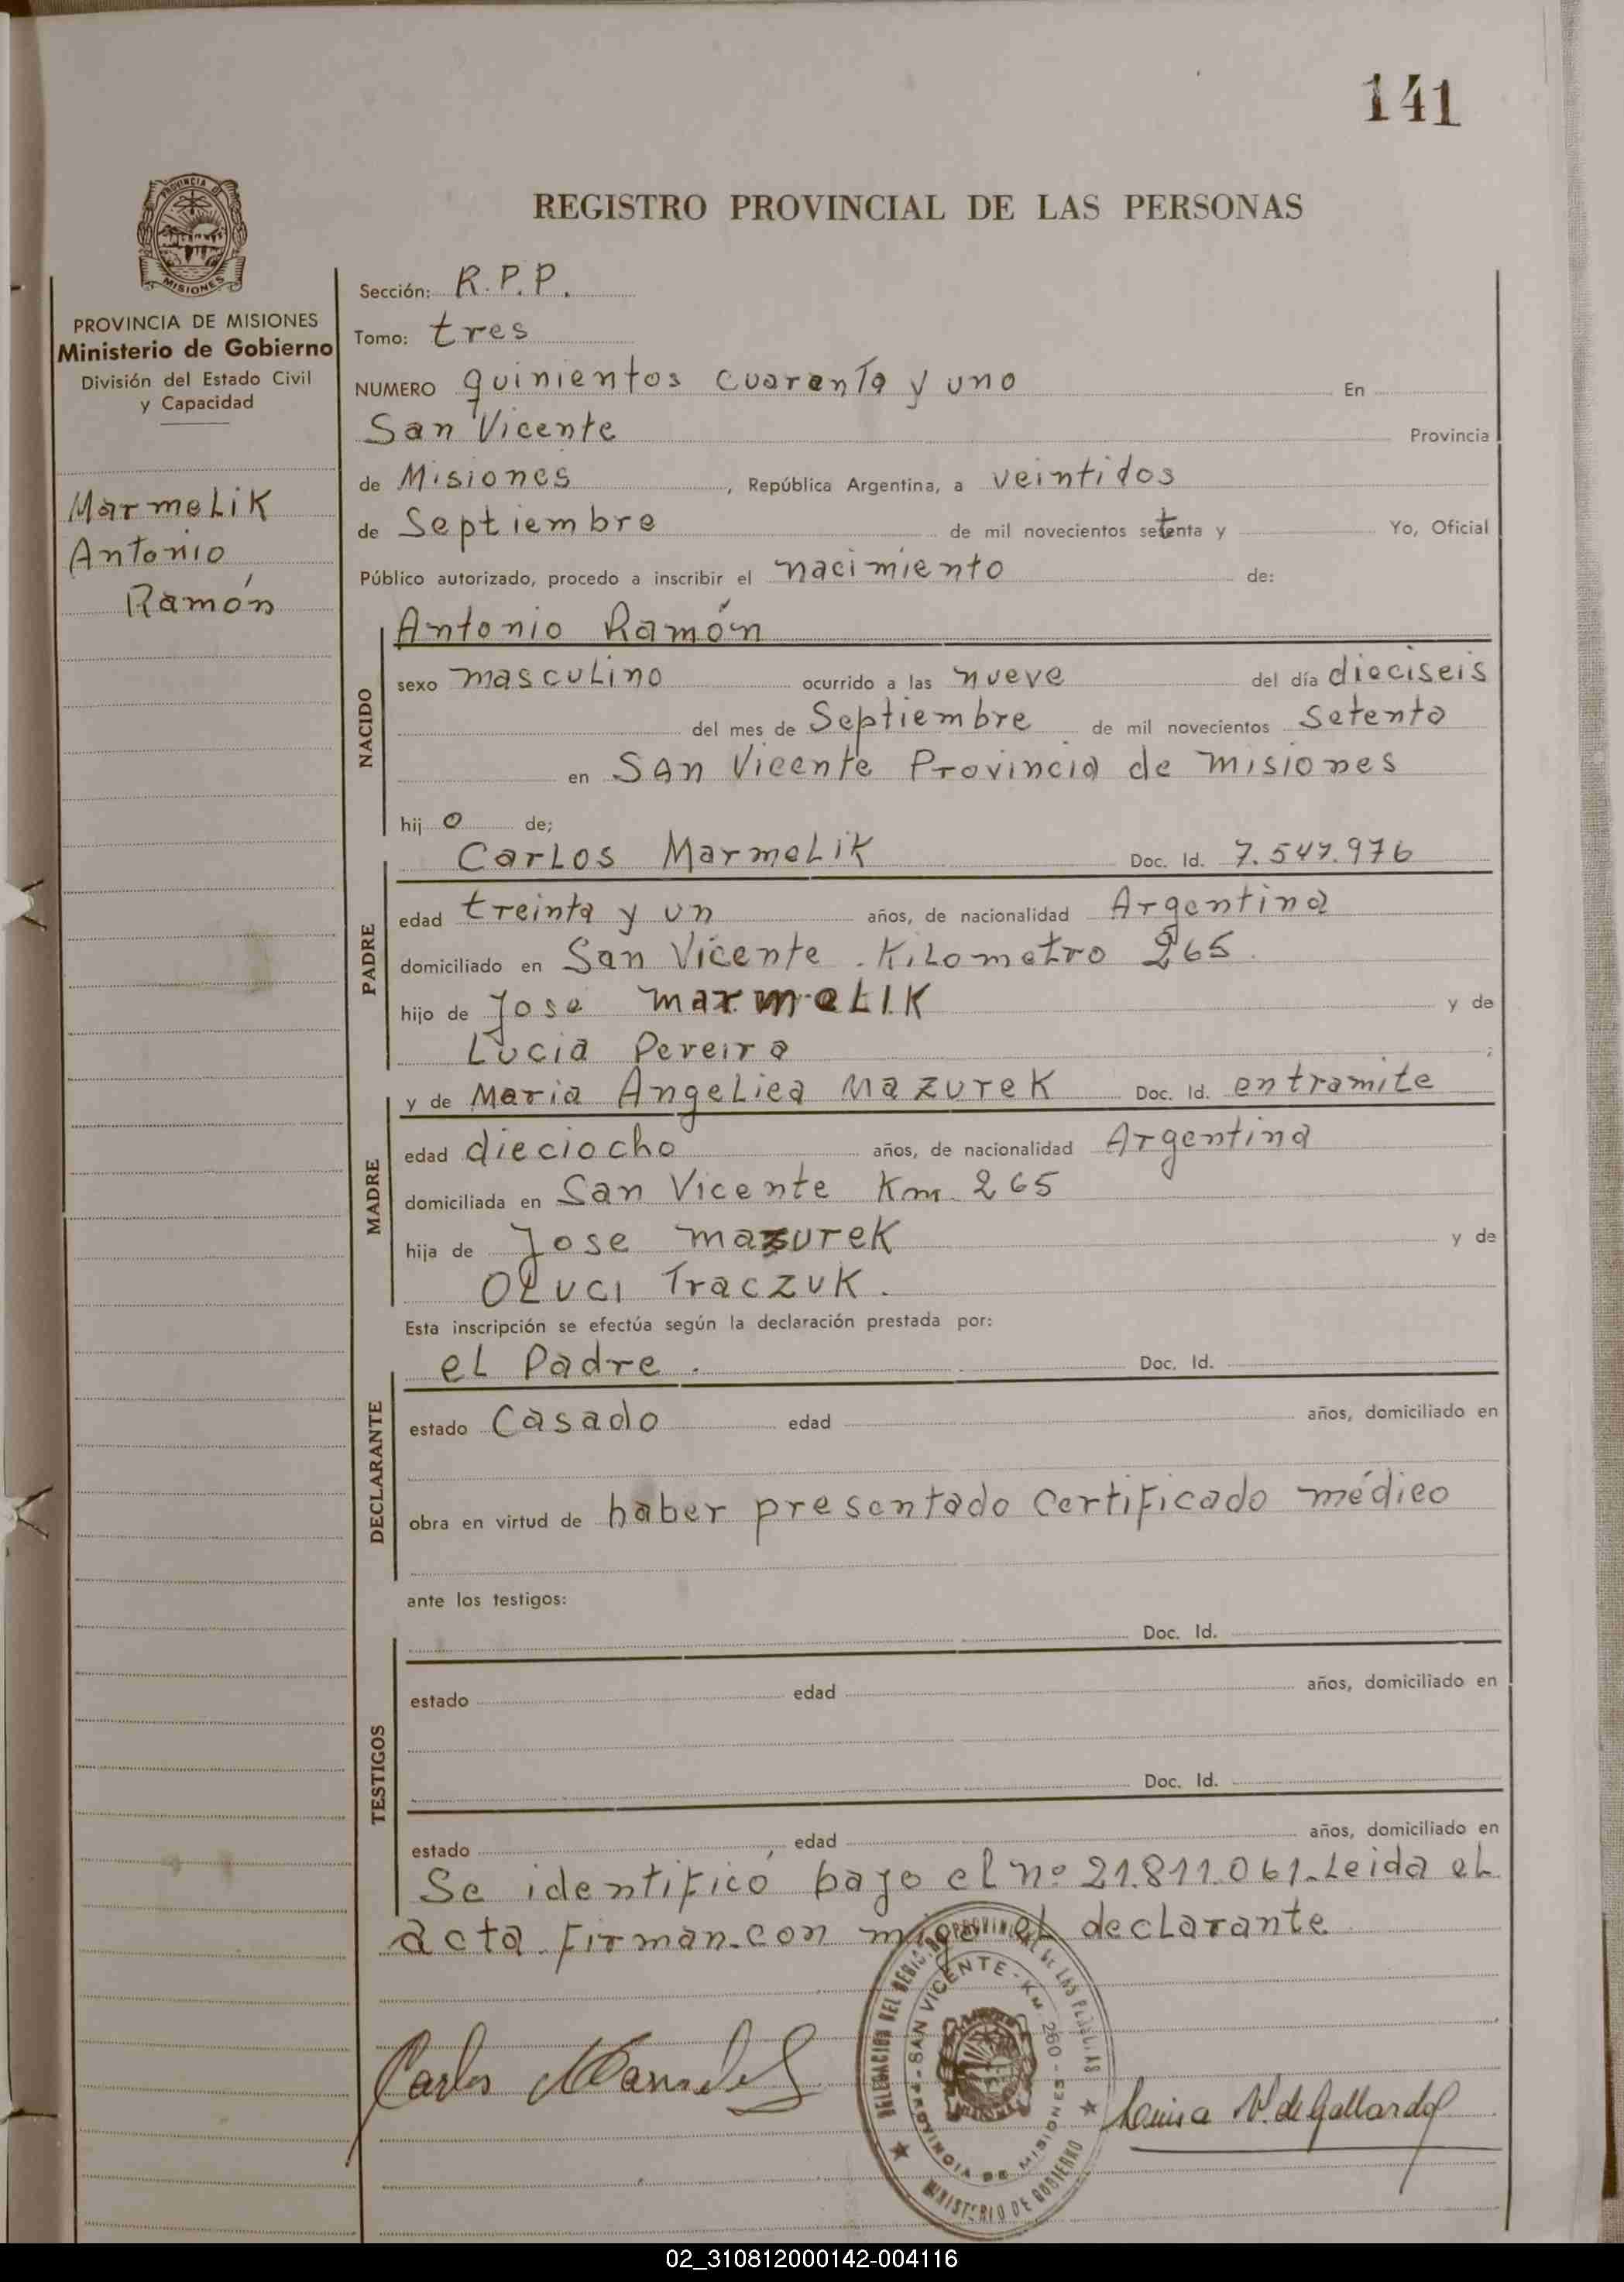 141
REGISTRO PROVINCIAL DE LAS PERSONAS
PROVINCIA DE MISIONES
PROVINCIA DE MISIONES
Ministerio de Gobierno
División del Estado Civil
y Capacidad
Marmelik
Antonio
Ramón
Sección: R.P.P.
Tomo: tres
NUMERO quinientos cuarenta y uno En
San Vicente Provincia
de Misiones, República Argentina, a veintidos
de Septiembre de mil novecientos setenta y Yo, Oficial
Público autorizado, procedo a inscribir el nacimiento de:
NACIDO
Antonio Ramón
sexo masculino ocurrido a las nueve del día dieciseis
del mes de Septiembre de mil novecientos setenta
en San Vicente Provincia de misiones
hijo de;
PADRE
Carlos Marmelik Doc. Id. 7.547.976
edad treinta y un años, de nacionalidad Argentina
domiciliado en San Vicente. Kilometro 265.
hijo de Jose marmelik y de
Lucia Pereira ;
MADRE
y de Maria Angelica Mazurek Doc. Id. entramite
edad dieciocho años, de nacionalidad Argentina
domiciliada en San Vicente Km. 265
hija de Jose mazurek y de
Oluci Traczuk.
Esta inscripción se efectúa según la declaración prestada por:
DECLARANTE
el Padre. Doc. Id.
estado Casado edad años, domiciliado en
obra en virtud de haber presentado certificado médico
ante los testigos:
TESTIGOS
Doc. Id.
estado edad años, domiciliado en
Doc. Id.
estado , edad años, domiciliado en
Se identificó bajo el nº 21.811.061. Leida el
acta. firman. con migo el declarante
Carlos Marmelik
DELEGACION DEL REGISTRO PROVINCIAL DE LAS PERSONAS
SAN VICENTE - KM 260 -
PROVINCIA DE MISIONES
MINISTERIO DE GOBIERNO
Luisa V. de Gallardo
02_310812000142-004116